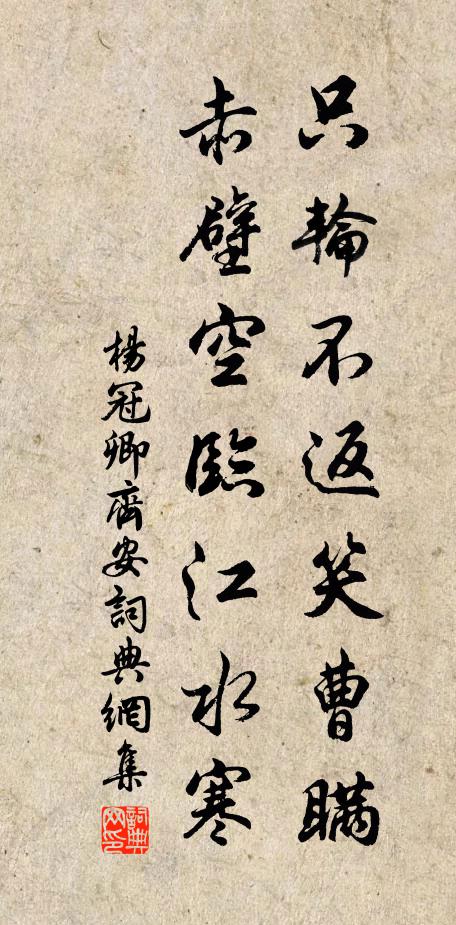 只輪不返笑曹瞞
赤壁空臨江水寒
楊冠卿齊安詞典網集
詞典網印